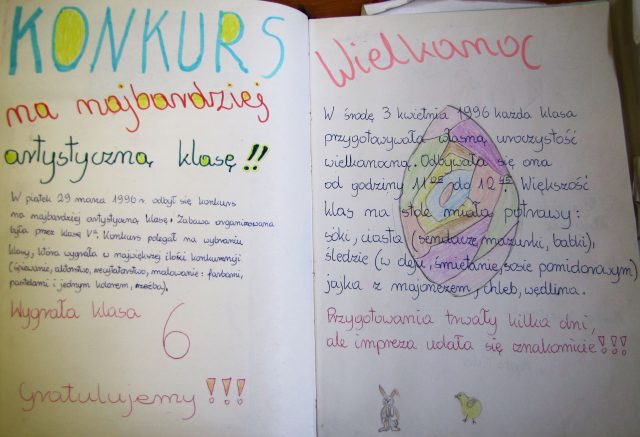 KONKURS
na najbardziej
artystyczną klasę!!
W piątek 29 marca 1996 r. odbył się konkurs
na najbardziej artystyczną klasę. Zabawa organizowana
była przez klasę Vᵃ. Konkurs polegał na wybraniu
klasy, która wygrała w największej ilości konkurencji
(śpiewanie, aktorstwo, recytatorstwo, malowanie: farbami,
pastelami i jednym kolorem, rzeźba).
Wygrała klasa
6
Gratulujemy !!!
Wielkanoc
W środę 3 kwietnia 1996 każda klasa
przygotowywała własną uroczystość
wielkanocną. Odbywała się ona
od godziny 11⁰⁵ do 12⁴⁵. Większość
klas na stole miała potrawy:
soki, ciasta (serniczek, mazurki, babki),
śledzie (w oleju, śmietanie, sosie pomidorowym)
jajka z majonezem, chleb, wędlina.
Przygotowania trwały kilka dni,
ale impreza udała się znakomicie!!!